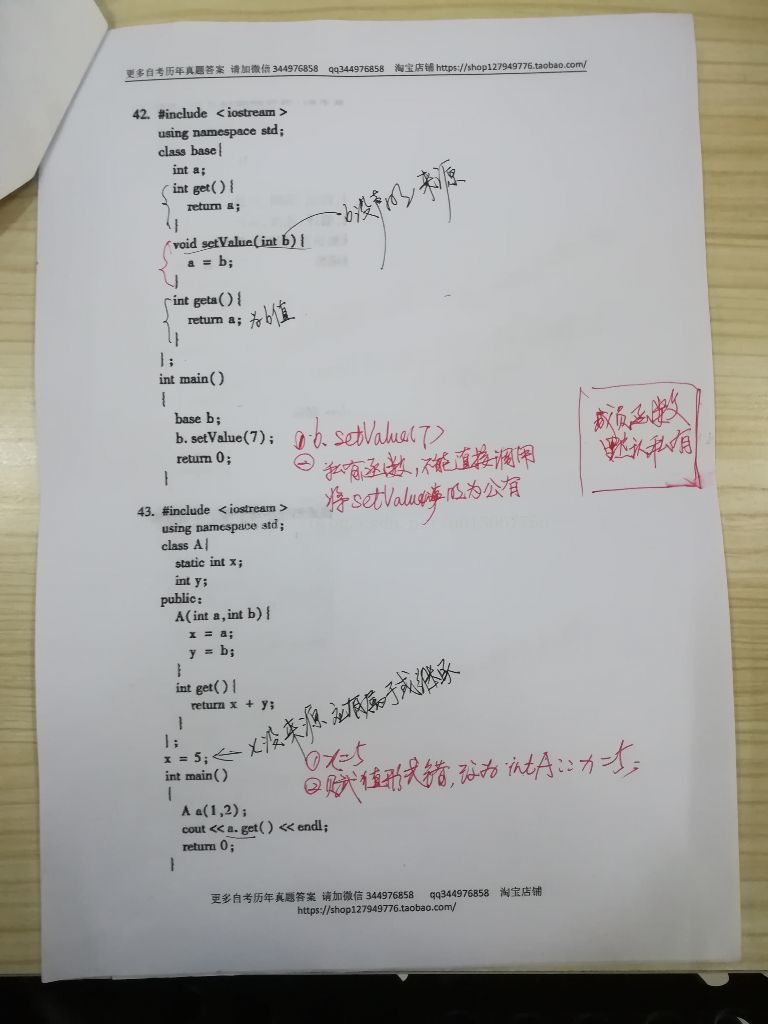 更多自考历年真题答案 请加微信 344976858 qq344976858 淘宝店铺 https://shop127949776.taobao.com/
42. #include <iostream>
using namespace std;
class base{
int a;
int get(){
return a;
}
b没声明, 来源
void setValue(int b){
a = b;
}
int geta(){
return a; 为b值
}
};
int main()
{
base b;
b. setValue(7);
return 0;
}
① b. setValue(7)
② 私有函数,不能直接调用
将setValue声明为公有
成员函数
默认私有
43. #include <iostream>
using namespace std;
class A{
static int x;
int y;
public:
A(int a,int b){
x = a;
y = b;
}
int get(){
return x + y;
}
};
x = 5; ← x没来源
int main()
{
A a(1,2);
cout <<a. get() <<endl;
return 0;
}
① x=5
② 赋值形式错, 改为 int A::x=5;
更多自考历年真题答案 请加微信 344976858 qq344976858 淘宝店铺
https://shop127949776.taobao.com/